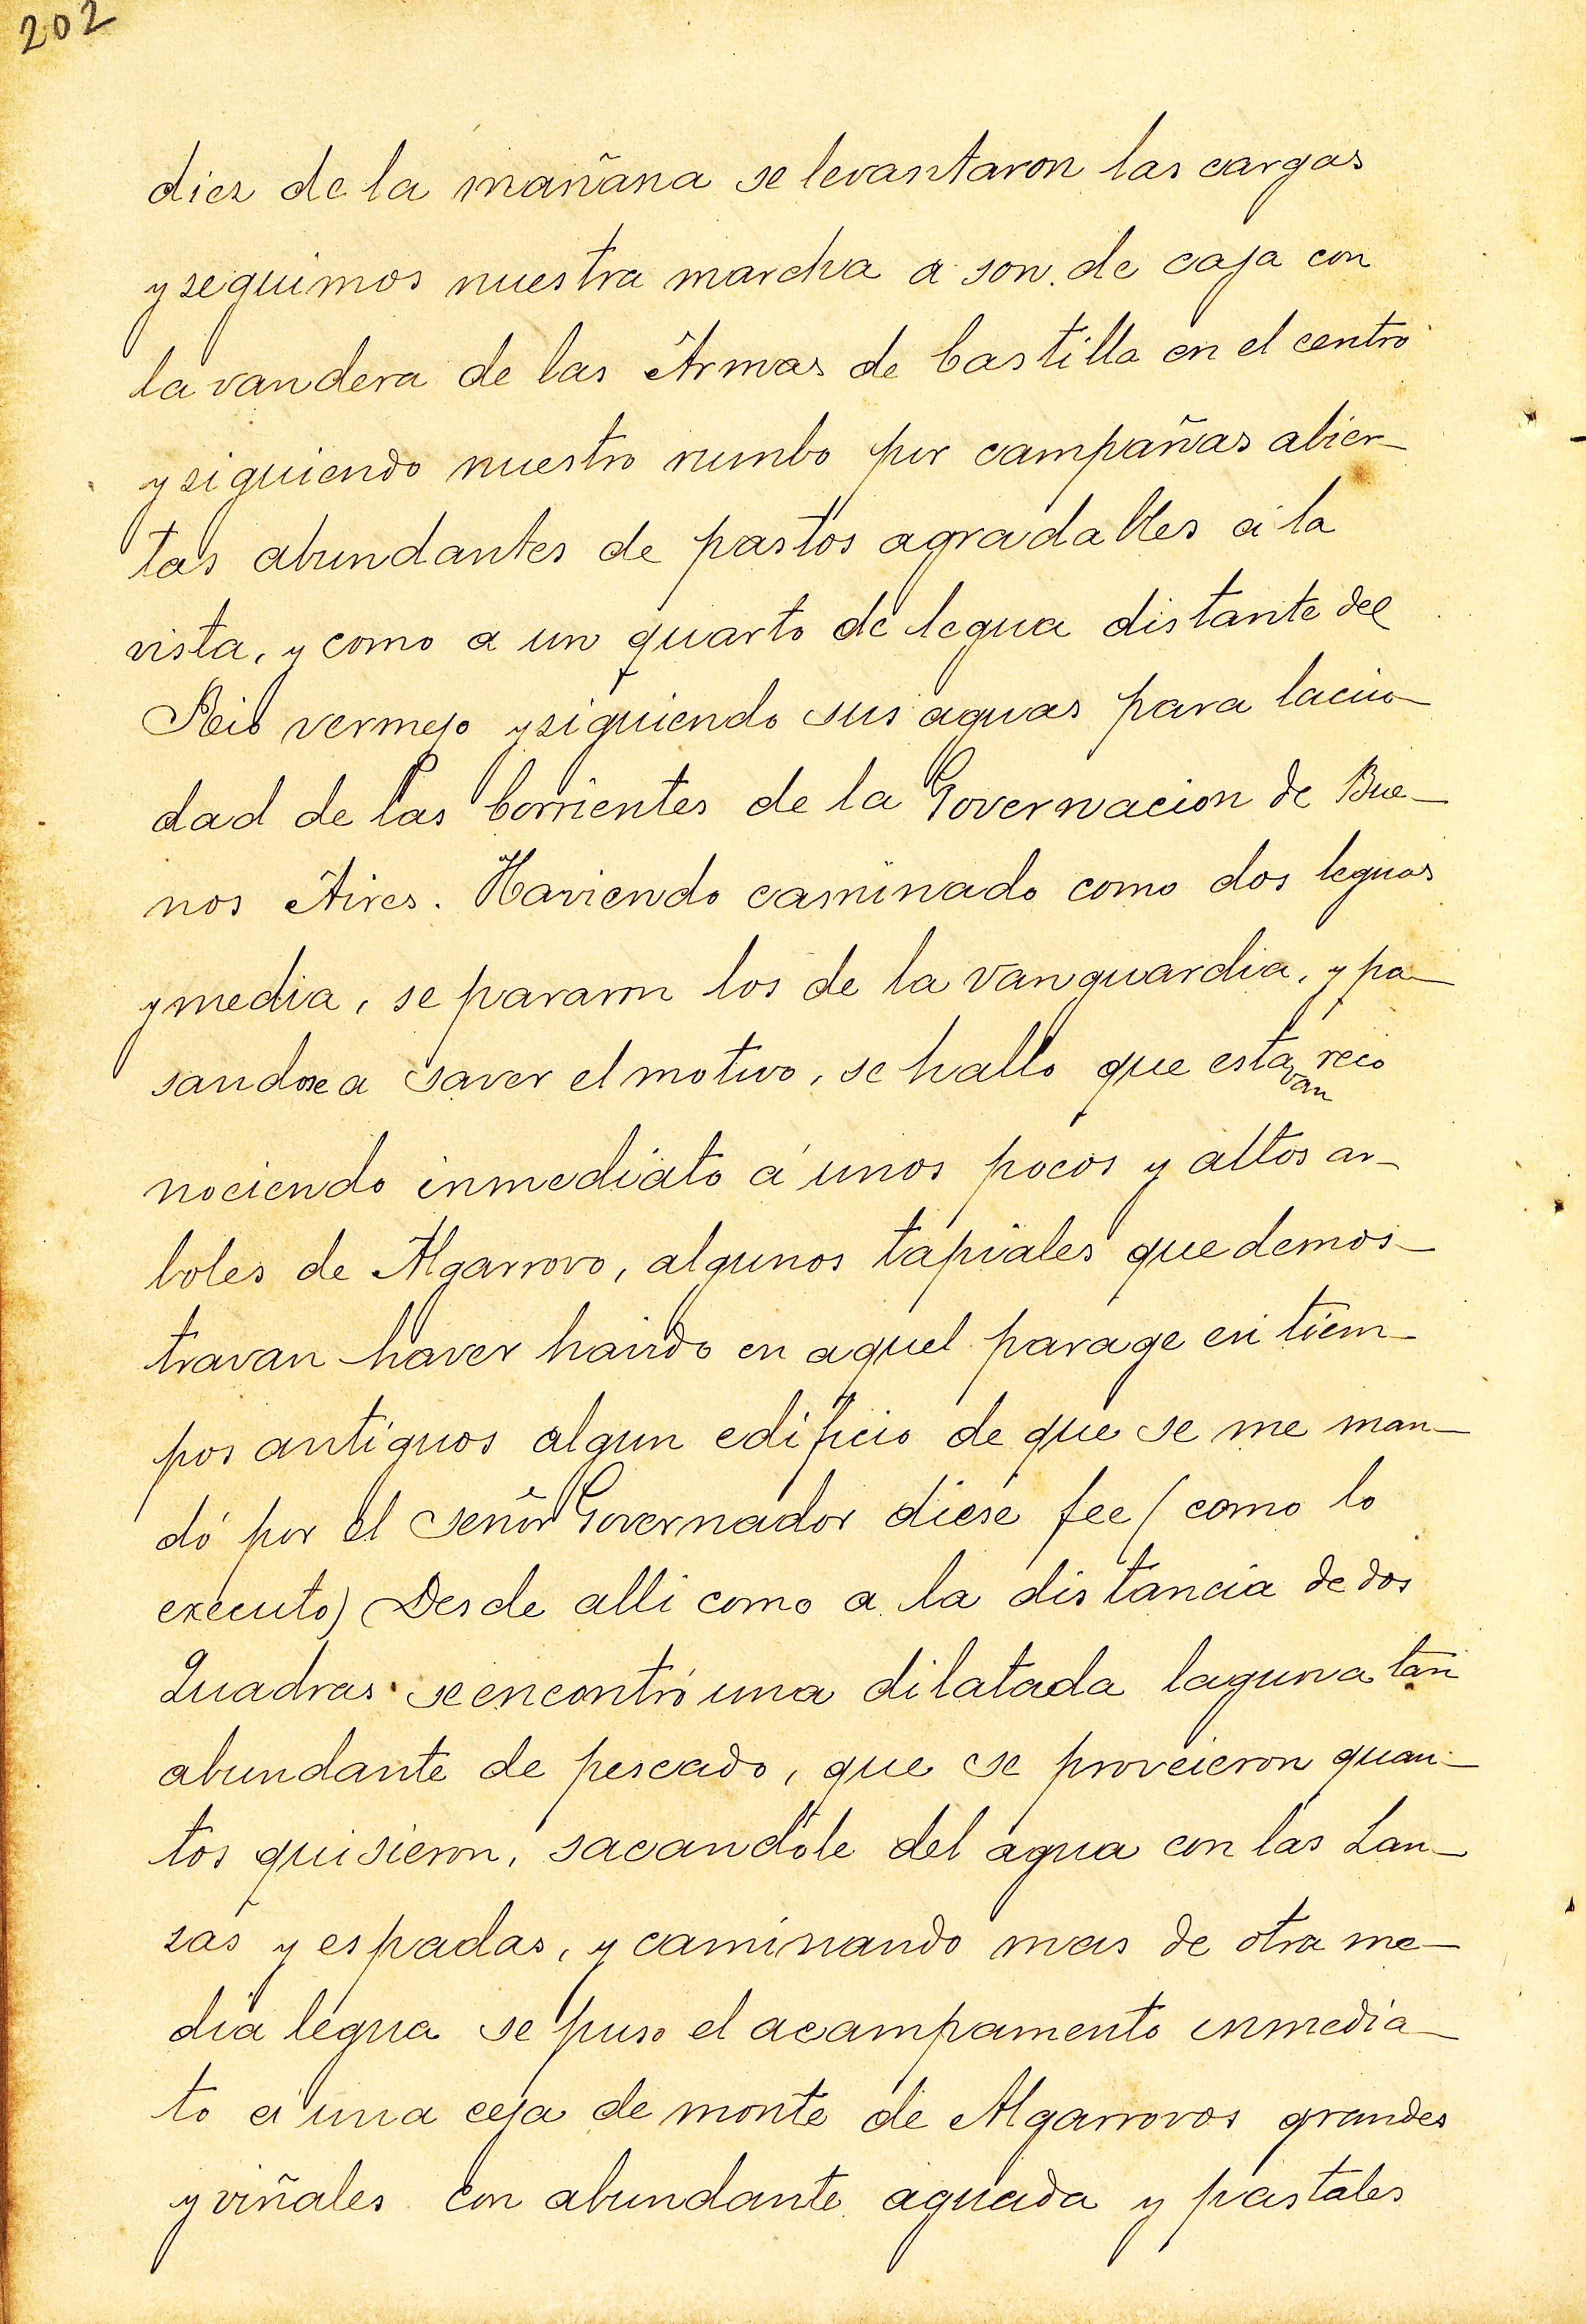 202
diez de la mañana se levantaron las cargas
y seguimos nuestra marcha a son de caja con
la vandera de las Armas de Castilla en el centro
y siguiendo nuestro rumbo por campañas abier-
tas abundantes de pastos agradables á la
vista, y como a un quarto de legua distante del
Reio vermejo y siguiendo sus aguas para laciu-
dad de las Corrientes de la Governacion de Bue-
nos Aires. Haviendo caminado como dos leguas
y media, se pararon los de la vanguardia, y pa-
sandose a saver el motivo, se hallo que estavan reco
nociendo inmediato á unos pocos y altos ar-
boles de Algarrovo, algunos tapiales que demos-
travan haver havido en aquel parage en tiem-
pos antiguos algun edificio de que se me man-
dó por el Señor Governador diese fee (como lo
executo) Desde alli como a la distancia de dos
Quadras se encontró una dilatada laguna tan
abundante de pescado, que se proveieron quan-
tos quisieron, sacandole del agua con las Lan-
zas y espadas, y caminando mas de otra me-
dia legua se puso el acampamento inmedia-
to á una ceja de monte de Algarrovos grandes
y viñales con abundante aguada y pastales